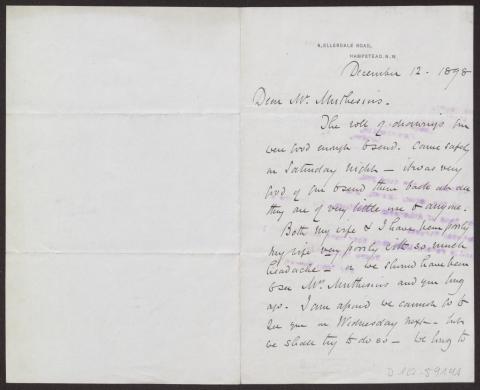 6, ELLERDALE ROAD,
HAMPSTEAD. N.W.
December 12 - 1898
Dear Mr. Muthesius.
The roll of drawings you
were good enough to send. Came safely
on Saturday night - it was very
good of you to send them back
they are of very little use to anyone.
Both my wife & I have been poorly
my wife very poorly with so much
headache - or we should have been
to see Mrs Muthesius and you long
ago. I am afraid we cannot go to
see you on Wednesday next - but
we shall try to do so - we long to